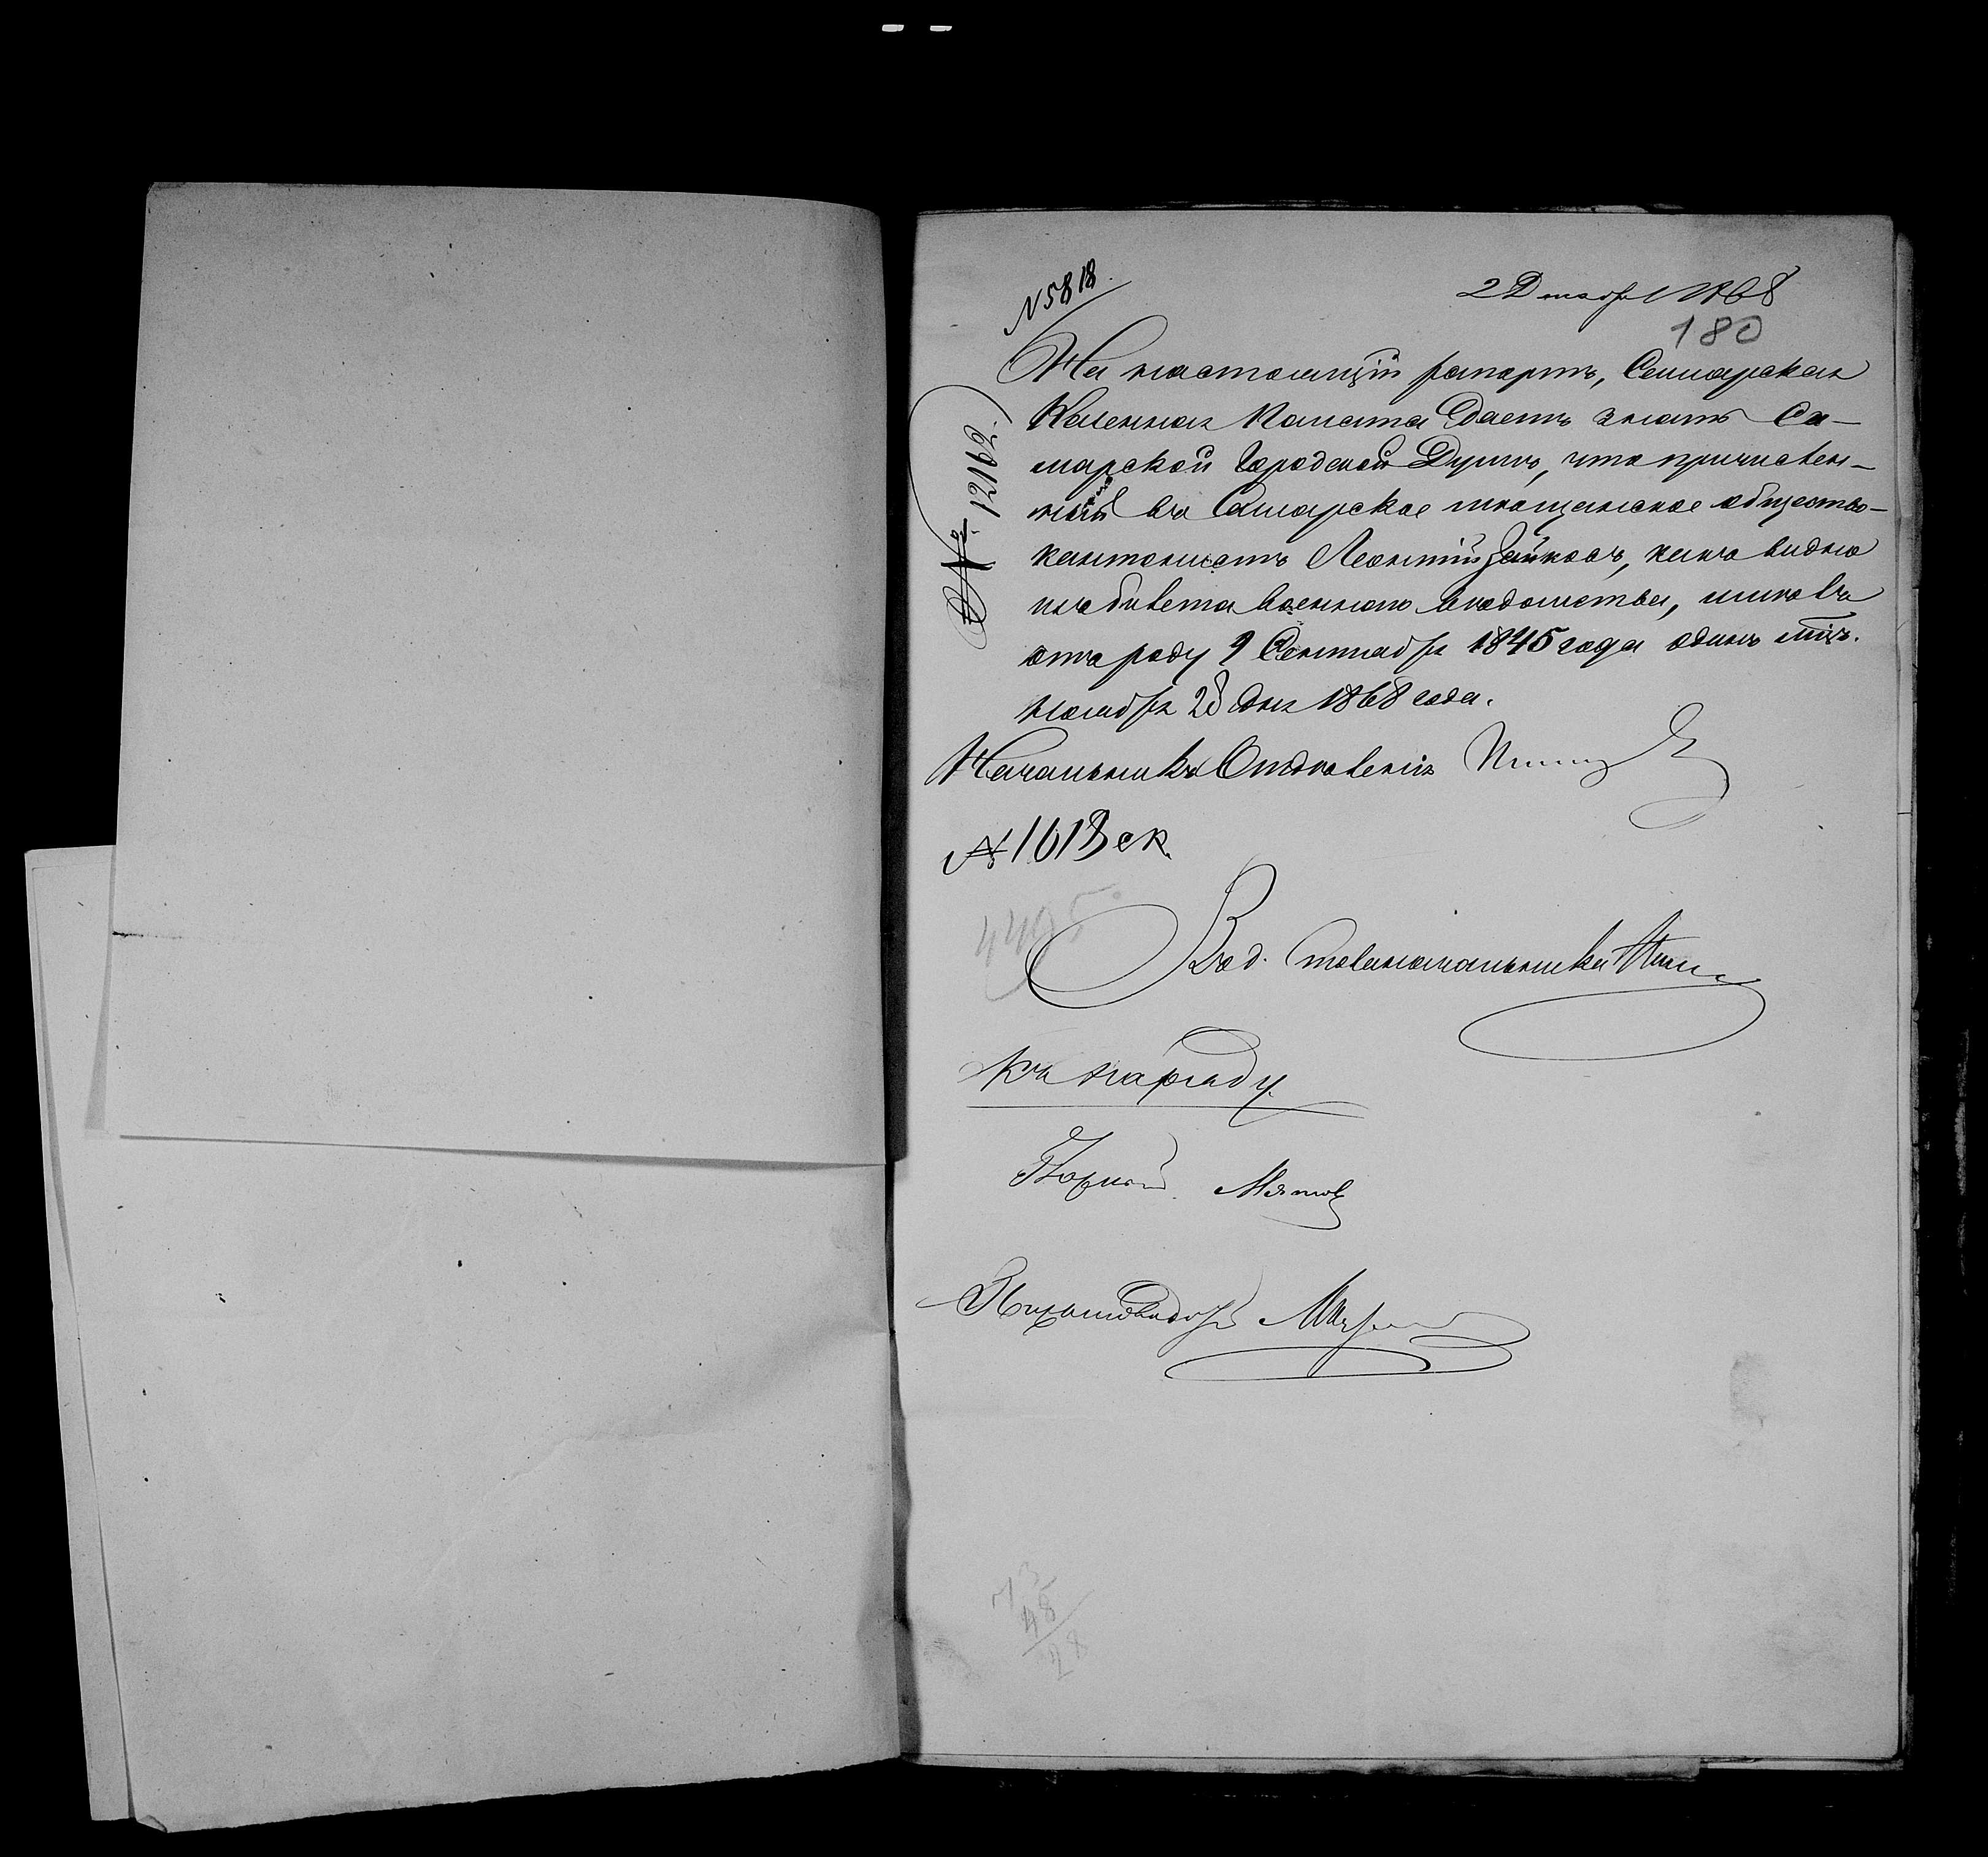 N 5818.
2 Декабря 1868
180
№ 12162.
На настоящій рапортъ, Самарская
Казенная Палата даетъ знать Са-
марской Городской Думѣ, что причислен-
ный въ Самарское мѣщанское общество
кантонистъ Леонтій Зайковъ, какъ видно
изъ билета военнаго вѣдомства, имѣлъ
отъ роду 9 Сентября 1845 года одинъ мцъ.
ноября 28 дня 1868 года.
Начальникъ Отдѣленія
№ 1613 ск.
4495
Столоначальника
Къ наряду.
48
28